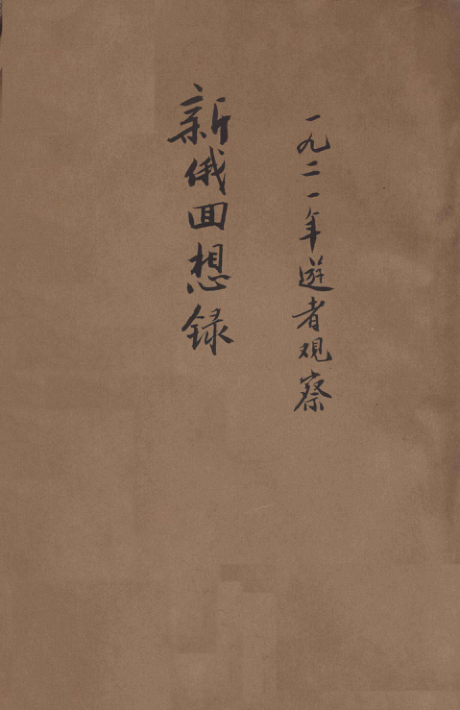 一九二一年遊者观察
新俄回想録